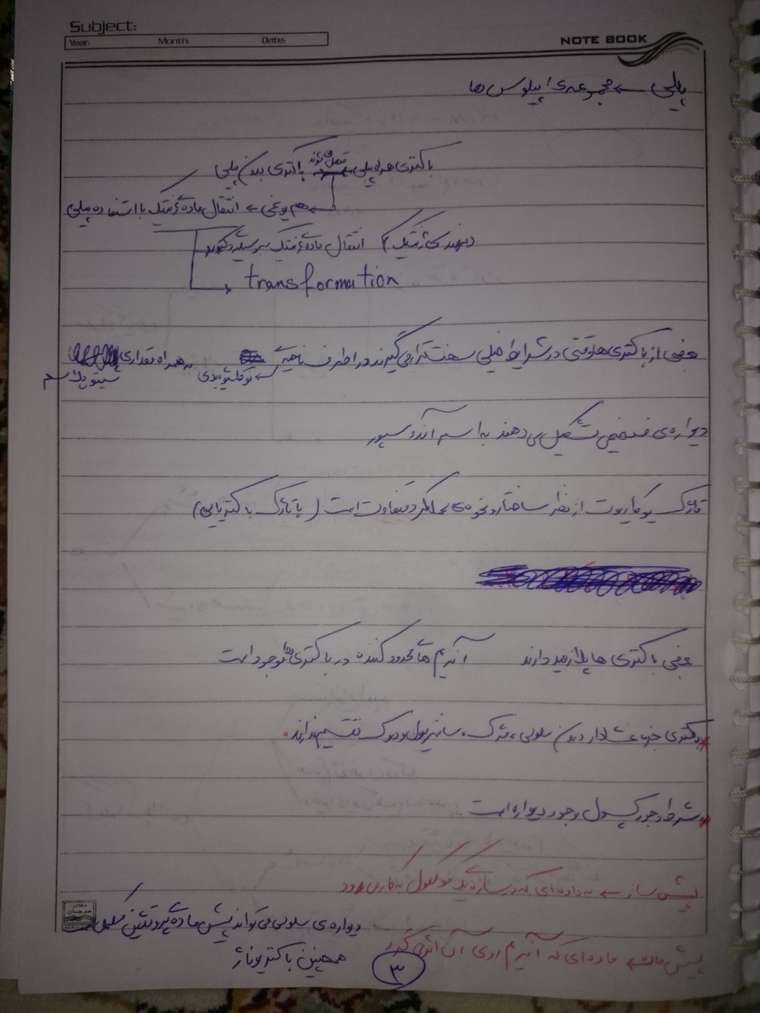 Subject:
Year: Month: Date:
NOTE BOOK
پیلی ← مجموعه‌ی پیلوس ها
باکتری همراه پیلی متصل می شوند باکتری بدون پیلی
← هم یوغی ← انتقال ماده ژنتیک با استفاده پیلی
مهندسی ژنتیک انتقال ماده ژنتیک
transformation
بعضی از باکتری ها وقتی در شرایط خیلی سخت قرار می گیرند در اطراف ناحیه ← نوکلئوئیدی به همراه مقداری
سیتوپلاسم
دیواره‌ی ضخیمی تشکیل می دهند به اسم آندوسپور
تاژک یوکاریوت از نظر ساختار و نحوه‌ی عملکرد متفاوت است (با تاژک باکتریایی)
بعضی باکتری ها پلازمید دارند آنزیم های محدود کننده در باکتری ها موجود است
باکتری جزء غشادار درون سلولی، مژک، سانتریول و دوک تقسیم ندارند.
شرط وجود کپسول وجود دیواره است
پیش ساز ← به ماده ای که در ساز یک مولکول به کار می رود
دیواره ی سلولی می تواند پیش ماده پروتئین
پیش ماده ← ماده ای که آنزیم روی آن اثر می گذارد
همچنین باکتریوفاژ
۳